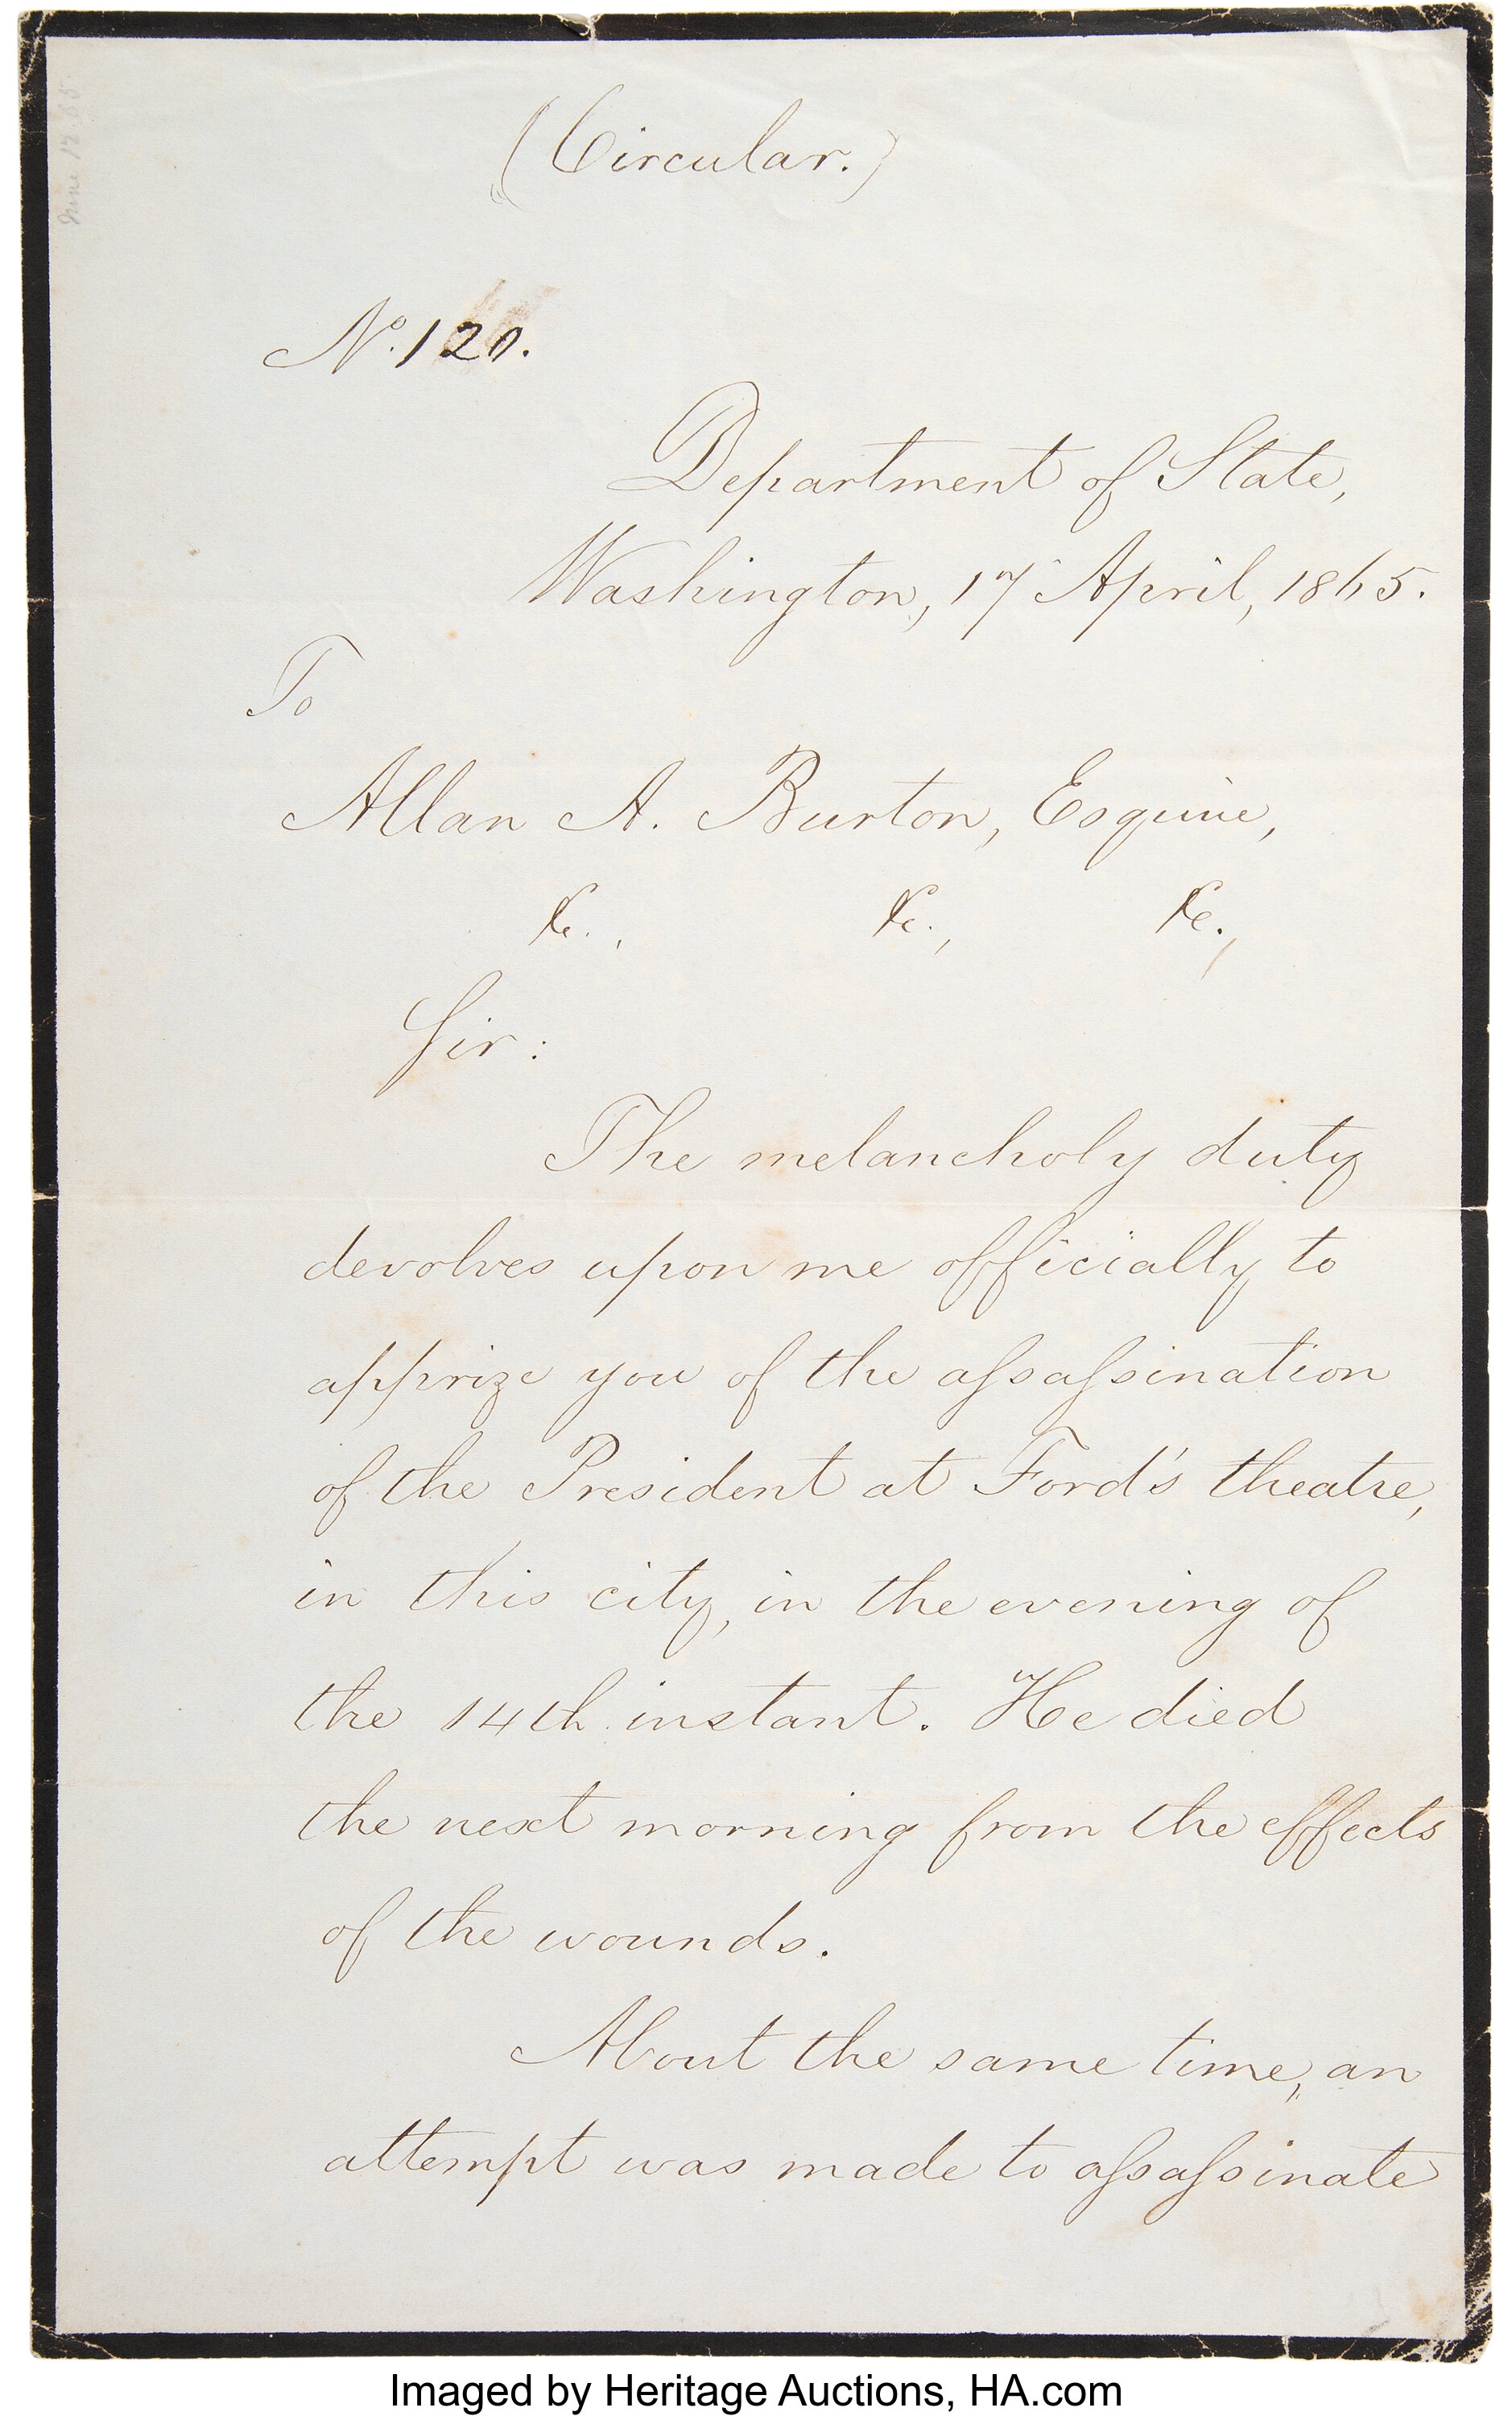 (Circular.)
No. 120.
Department of State,
Washington, 17 April, 1865.
To
Allan A. Burton, Esquire,
&c., &c., &c.,
Sir:
The melancholy duty
devolves upon me officially to
apprize you of the assassination
of the President at Ford's theatre,
in this city, in the evening of
the 14th instant. He died
the next morning from the effects
of the wounds.
About the same time, an
attempt was made to assassinate
Imaged by Heritage Auctions, HA.com